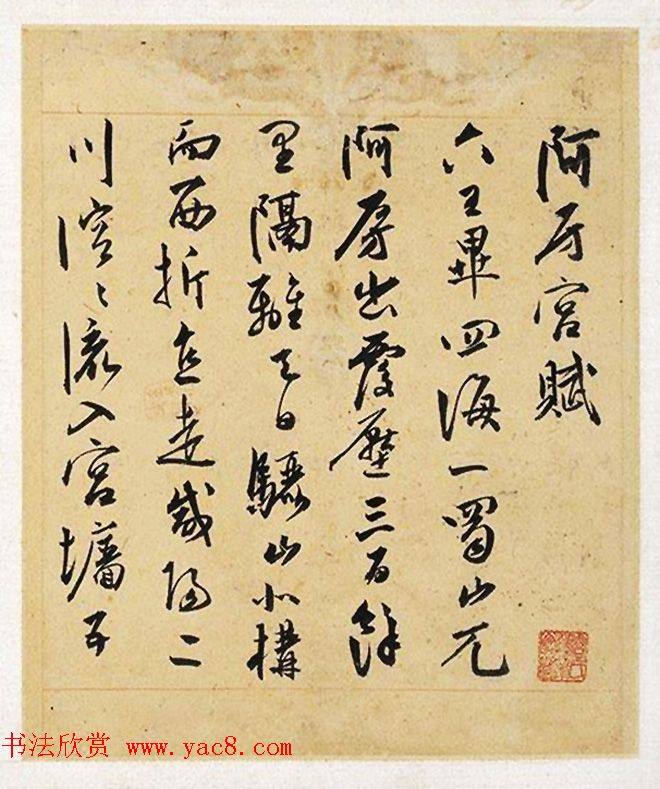 阿房宮賦
六王畢四海一蜀山兀
阿房出覆壓三百餘
里隔離天日驪山北構
而西折直走咸陽二
川溶〻流入宮牆五
书法欣赏 www.yac8.com